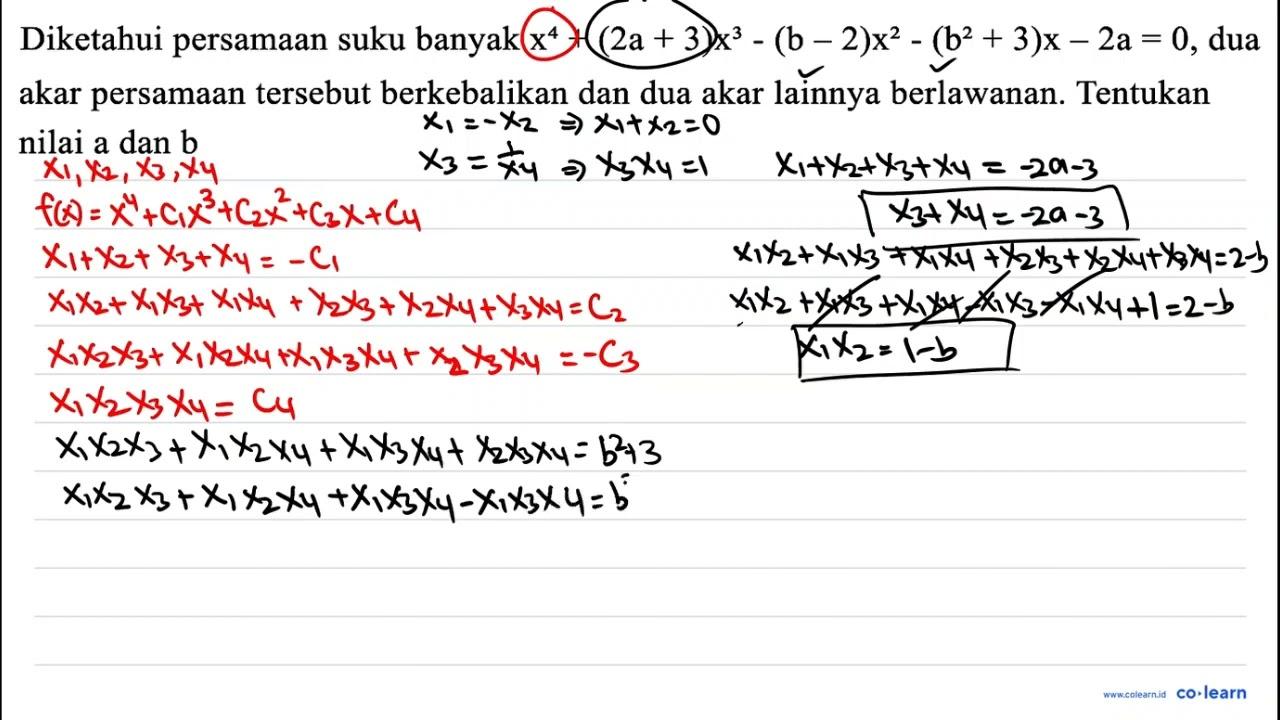 Diketahui persamaan suku banyak x⁴ + (2a + 3)x³ - (b – 2)x² - (b² + 3)x – 2a = 0, dua
akar persamaan tersebut berkebalikan dan dua akar lainnya berlawanan. Tentukan
nilai a dan b
x₁ = -x₂ ⇒ x₁ + x₂ = 0
x₃ = 1/x₄ ⇒ x₃x₄ = 1
x₁, x₂, x₃, x₄
f(x) = x⁴ + C₁x³ + C₂x² + C₃x + C₄
x₁ + x₂ + x₃ + x₄ = -C₁
x₁x₂ + x₁x₃ + x₁x₄ + x₂x₃ + x₂x₄ + x₃x₄ = C₂
x₁x₂x₃ + x₁x₂x₄ + x₁x₃x₄ + x₂x₃x₄ = -C₃
x₁x₂x₃x₄ = C₄
x₁x₂x₃ + x₁x₂x₄ + x₁x₃x₄ + x₂x₃x₄ = b² + 3
x₁x₂x₃ + x₁x₂x₄ + x₁x₃x₄ - x₁x₃x₄ = b
x₁ + x₂ + x₃ + x₄ = -2a - 3
x₃ + x₄ = -2a - 3
x₁x₂ + x₁x₃ + x₁x₄ + x₂x₃ + x₂x₄ + x₃x₄ = 2 - b
x₁x₂ + x₁x₃ + x₁x₄ - x₁x₃ - x₁x₄ + 1 = 2 - b
x₁x₂ = 1 - b
www.colearn.id co·learn